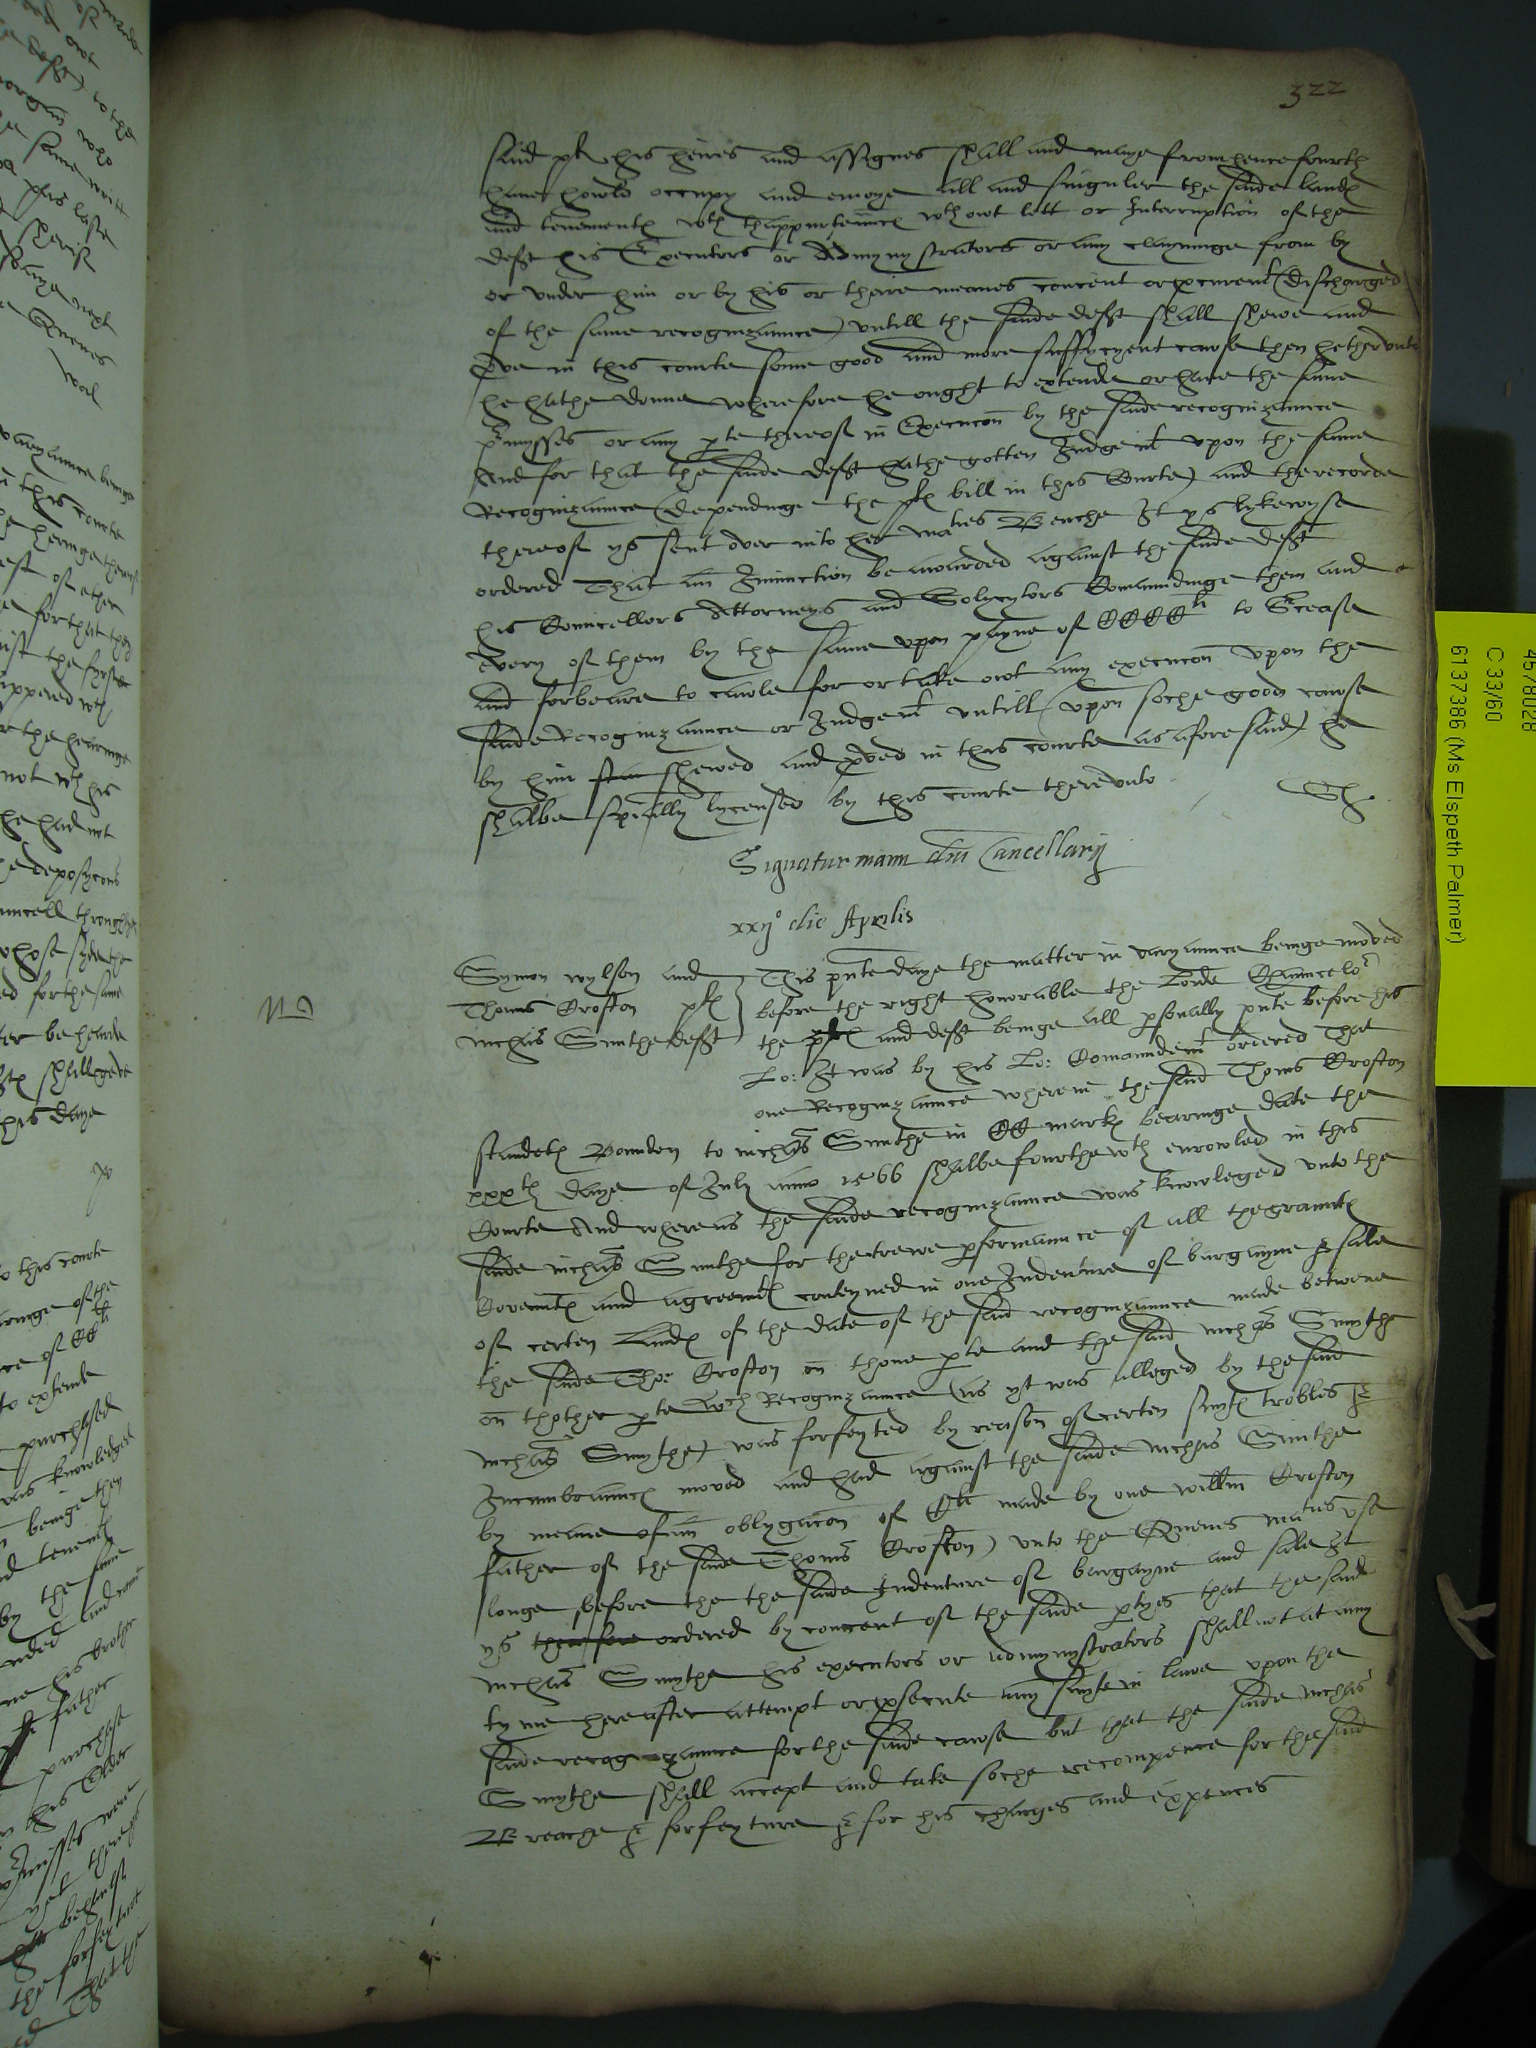 322
said pl his heires and assignes shall and maye from hencefourth
have howld occupy and enioye all and singuler the saide land
and tenement wth thappurtennc wthowt lett or Interruption of the
deft his Executors or Admynystrators or any clayminge from by
or under him or by his or theire meanes concent or procurent (discharged
of the same recognizaunce) untill the saide deft shall shewe and
prove in this courte some good and more suffycyent cause then hetherunto
he hathe donne wherefore he ought to extende or have the same
pmysses or any pte thereof in Execucon by the saide recognizaunce
And for that the saide deft hathe gotten Judgemt upon the same
Recognizaunce (dependinge the pl bill in this Courte) and the recorde
thereof ys sent over into her maties Benche It ys lykewyse
ordered That an Iniunction be awarded against the saide deft
his Councellors Attorneys and Solycytors Comaundinge them and
every of them by the same upon payne of CCCCli to Surcease
and forbeare to caule for or take owt any execucon upon the
saide Recognizaunce or Judgemt untill (upon soche good cause
by him shewed and pved in this courte as aforesaid) he
shalbe specially lycensed by this courte thereunto
Signatur manu dni Cancellarij
xxij° die Aprilis
Symon wylson and
Thoms Crofton pl
Nichas Smithe deft
This pnte daye the matter in varyaunce beinge moved
before the right honorable the Lorde Chauncelor
the pl and deft beinge all psonally pnte before his
Lo: It was by his Lo: Comaundemt ordered That
one Recognizaunce wherein the said Thoms Crofton
standeth Bounden to nichas Smithe in CC mark bearinge date the
xxxth daye of July anno 1566 shalbe fourthewth enrowled in this
Courte And whereas the saide recognizaunce was knowleged unto the
saide nichas Smithe for the trewe pformaunce of all the graunt
Covennt and agreemt conteyned in one Indenture of bargayne & sale
of certen Land of the date of the said recognizaunce made betwene
the saide Tho: Crofton on thone pte and the said nichas Smythe
on thother pte wch Recognizaunce (as yt was alleged by the said
nichas Smythe) was forfeyted by reason of certen suyt trobles &
Incumbraunc moved and had against the saide nichas Smithe
by meane of an oblygacon of Cli made by one willm Crofton
father of the saide Thoms Crofton) unto the Quenes maties use
longe before the the saide Indenture of bargayne and sale It
ys therefore ordered by concent of the saide ptyes that the saide
nichas Smythe his executors or admynystrators shall not at any
tyme hereafter attempt or psecute any suyte in lawe upon the
saide recognizaunce for the saide cause but that the saide nichas
Smythe shall accept and take soche recompence for the said
Breache & forfeyture & for his charges and expences
C 33/60
6137386 (Ms Elspeth Palmer)